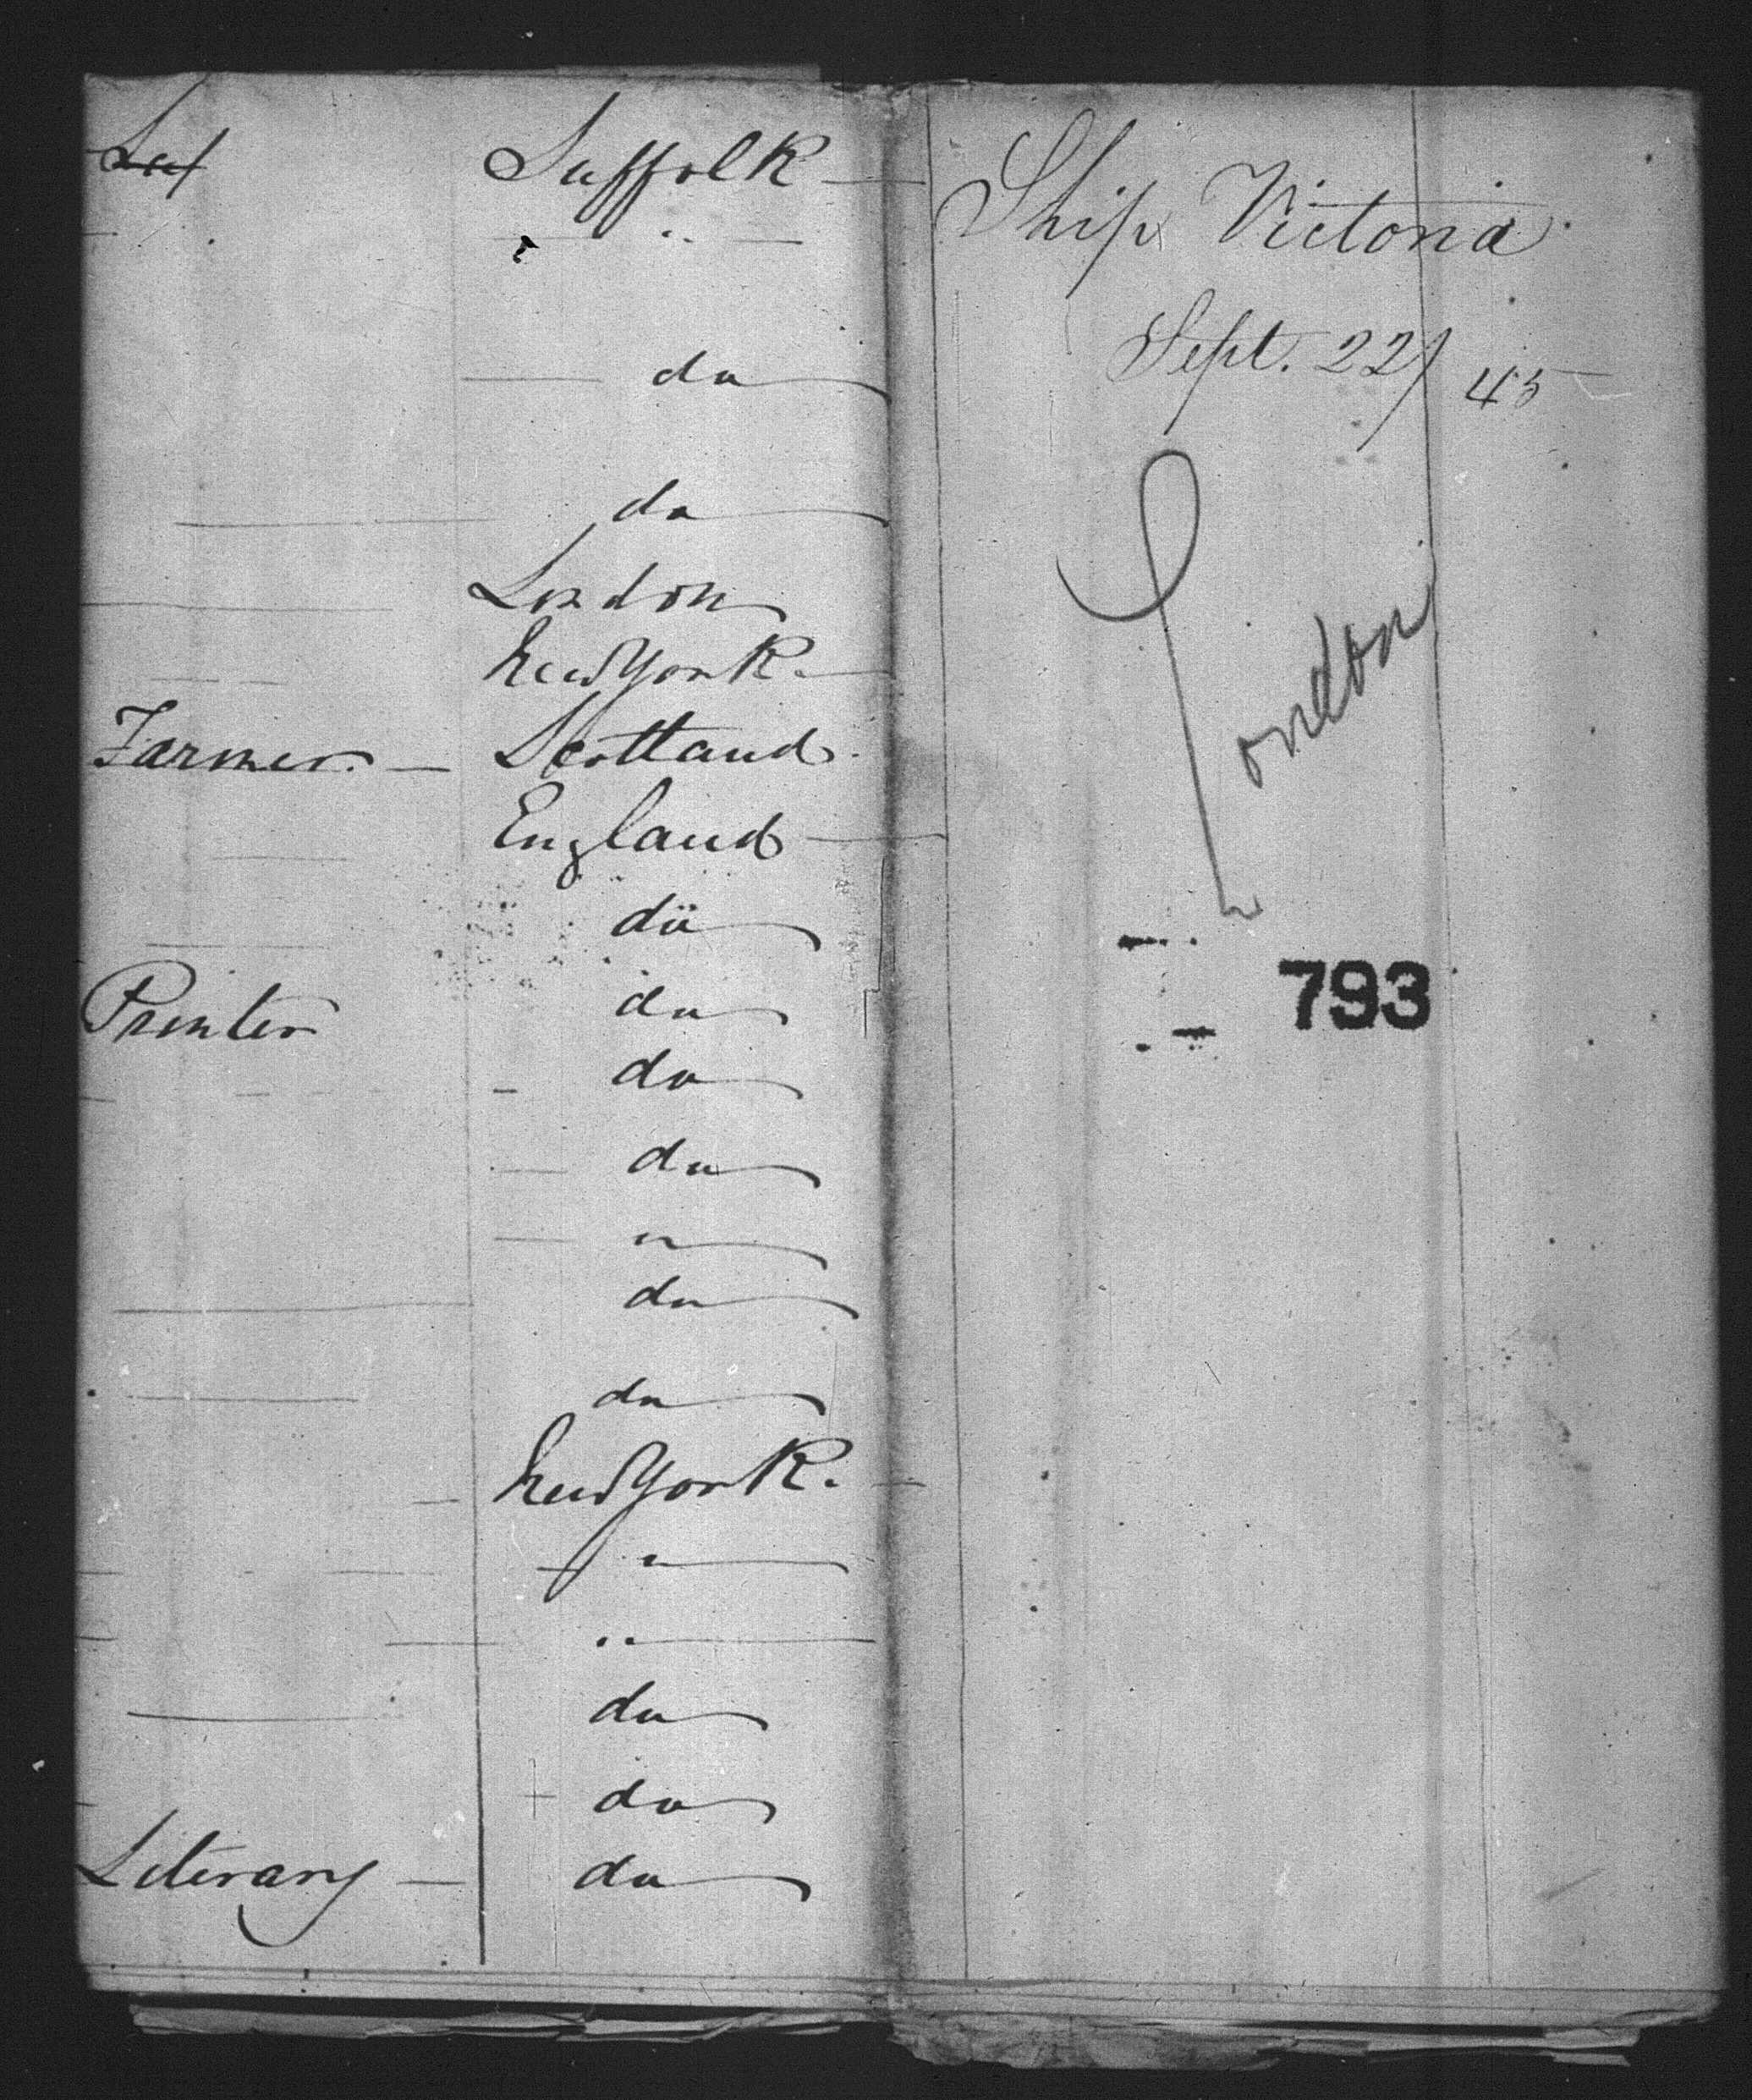 Suffolk
" "
do
do
London
New York.
Farmer. Scotland
England
do
Printer do
do
do
"
do
do
New York.
"
"
do
do
Literary do
Ship Victoria
Sept. 22/45
London
793